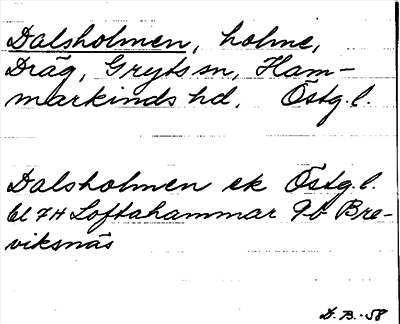 Dalsholmen, holme,
Dräg, Gryts sn, Ham-
markinds hd, Östg.l.
Dalsholmen ek Östg.l.
Bl 7H Loftahammar 9b Bre-
viksnäs
D.B.-58